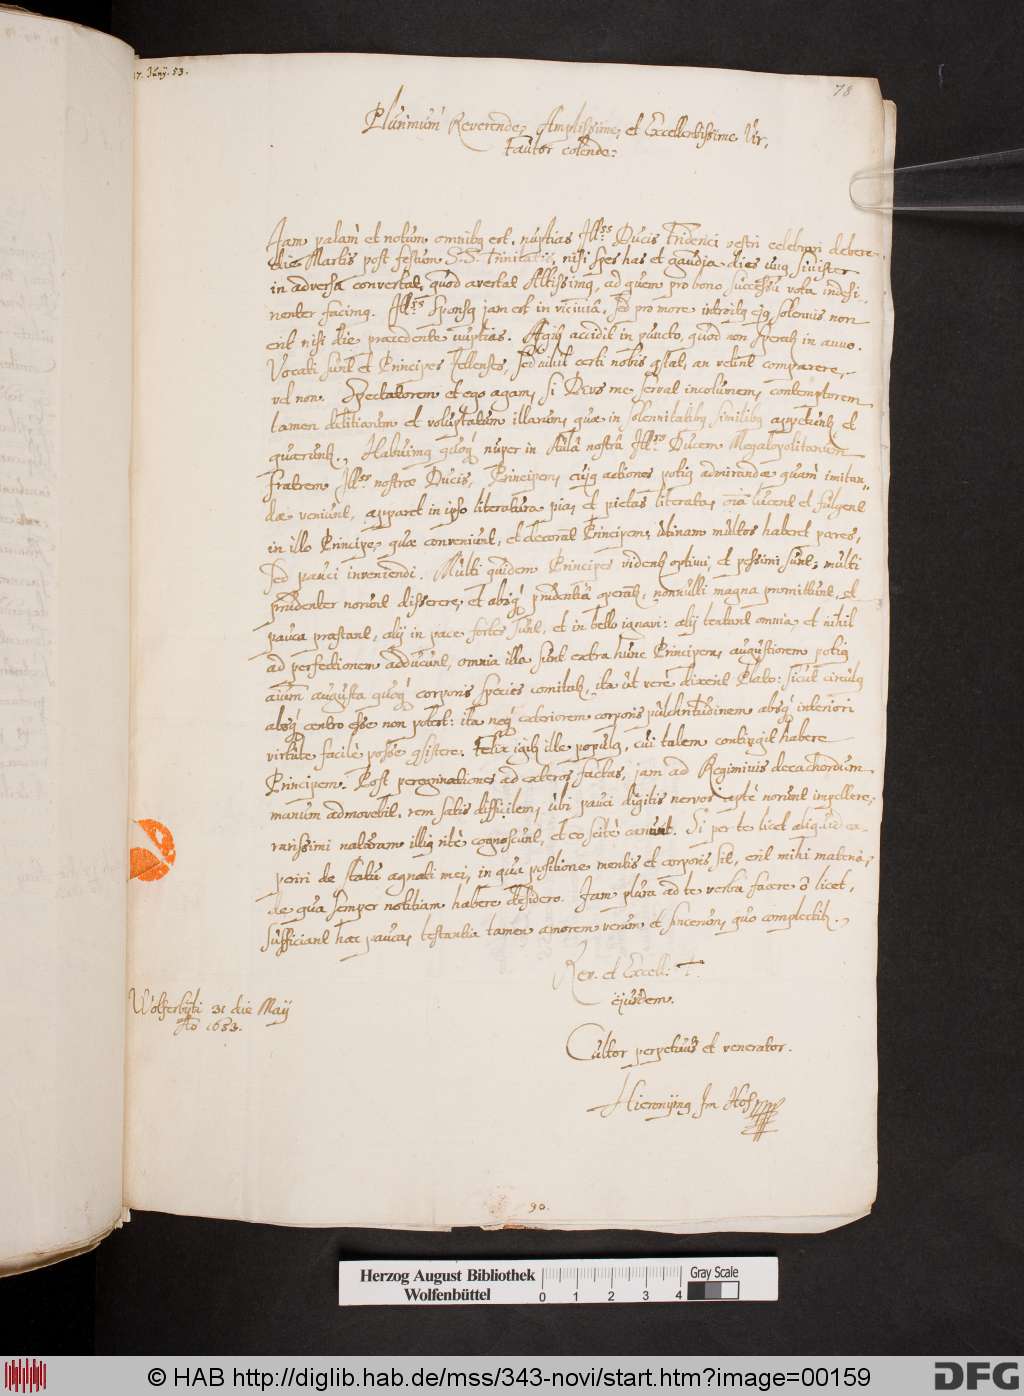 17. Junij. 53.
78
Plurimum Reverende, Amplissime, et Excellentissime Vir,
Fautor colende:
Jam palam et notum omnibq est, nuptias Ill.ss Ducis Friderici nestri celebrari debere
die Martis post festum S.S. Trinitatis, nisi spes has et gaudia dies unq sinister
in adversa convertat, quod avertat Altissimq, ad quem pro bono successu vota indesi-
nenter facimq. Ill.ss Sponsq jam est in vicinia, sed pro more introitq ejq solennis non
erit nisi die praecedente nuptias. Aegitq accidit in puncto, quod non speratq in anno.
Vocati sunt et Principes Zellenses, sed nihil certi nobis qstat, an velint comparere,
vel non. Spectatorem et ego agam, si Deus me servat incolumem, contemptorem
tamen delitiarum et voluptatum illarum, quae in solennitatibq similibq appetuntq et
quaeruntq. Habuimq quoq nuper in Aula nostra Ill.ss Ducem Megalopolitanum
fratrem Ill.ss nostrae Ducis, Principem, cuiq actiones potiq admirandae quam imitan-
dae veniunt, apparet in ipso literatura pia, et pietas literata, oia lucent et fulgent
in illo Principe, quae conveniunt, et decorant Principem, utinam multos haberet pares,
sed pauci inveniendi. Multi quidem Principes videntq optimi, et pessimi sunt, multi
prudenter norunt disserere, et absq prudentia operantq, nonnulli magna promittunt, et
pauca praestant, alij in pace fortes sunt, et in bello ignavi: alij tentant omnia, et nihil
ad perfectionem adducunt, omnia illa sunt extra hunc Principem, augustiorem potiq
animum augusta quoq corporis species comitatq, ita ut verè dixerit Plato: sicut circulq
absq centro esse non potest: ita neq exteriorem corporis pulchritudinem absq interiori
virtute facilè posse qsistere. Felix igitq ille populq, cui talem contingit habere
Principem. Post peregrinationes ad exteros factas, jam ad Regiminis decachordum
manum admovebit, rem satis difficilem, ubi pauci digitis nervos aptè norunt impellere,
rarissimi naturam illiq ritè cognoscunt, et eo scitè canunt. Si per te licet aliquid ex-
periri de statu agnati mei, in qua positione mentis et corporis sit, erit mihi materia,
de qua semper notitiam habere desidero. Jam plura ad te verba facere ō licet,
sufficiant haec pauca, testantia tamen amorem verum et sincerum, quo complectitq.
Rev. et Excell: T.
ejusdem.
Wolferbyti 31 die Maij
Ao 1653.
Cultor perpetuus et venerator.
Hieronijmq Im Hof
90.
Herzog August Bibliothek
Wolfenbüttel
0 1 2 3 4
Gray Scale
© HAB http://diglib.hab.de/mss/343-novi/start.htm?image=00159
DFG